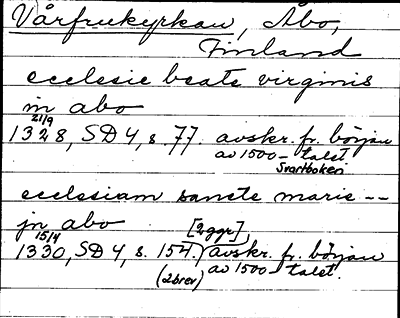 Vårfrukyrkan, Åbo,
Finland
ecclesie beate virginis
in abo
21/9
1328, SD 4, s. 77. avskr. fr. början
av 1500-talet
Svartboken
ecclesiam sancte marie --
jn abo [2 ggr]
15/4
1330, SD 4, s. 154. avskr. fr. början
(2 brev) av 1500-talet.